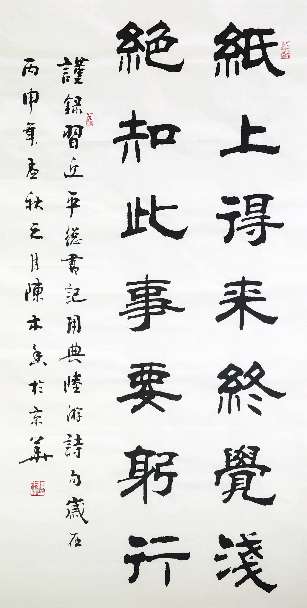 紙上得来終覺淺
絶知此事要躬行
謹録習近平總書記用典陸游詩句歲在
丙申年孟秋之月陳木魚於京華